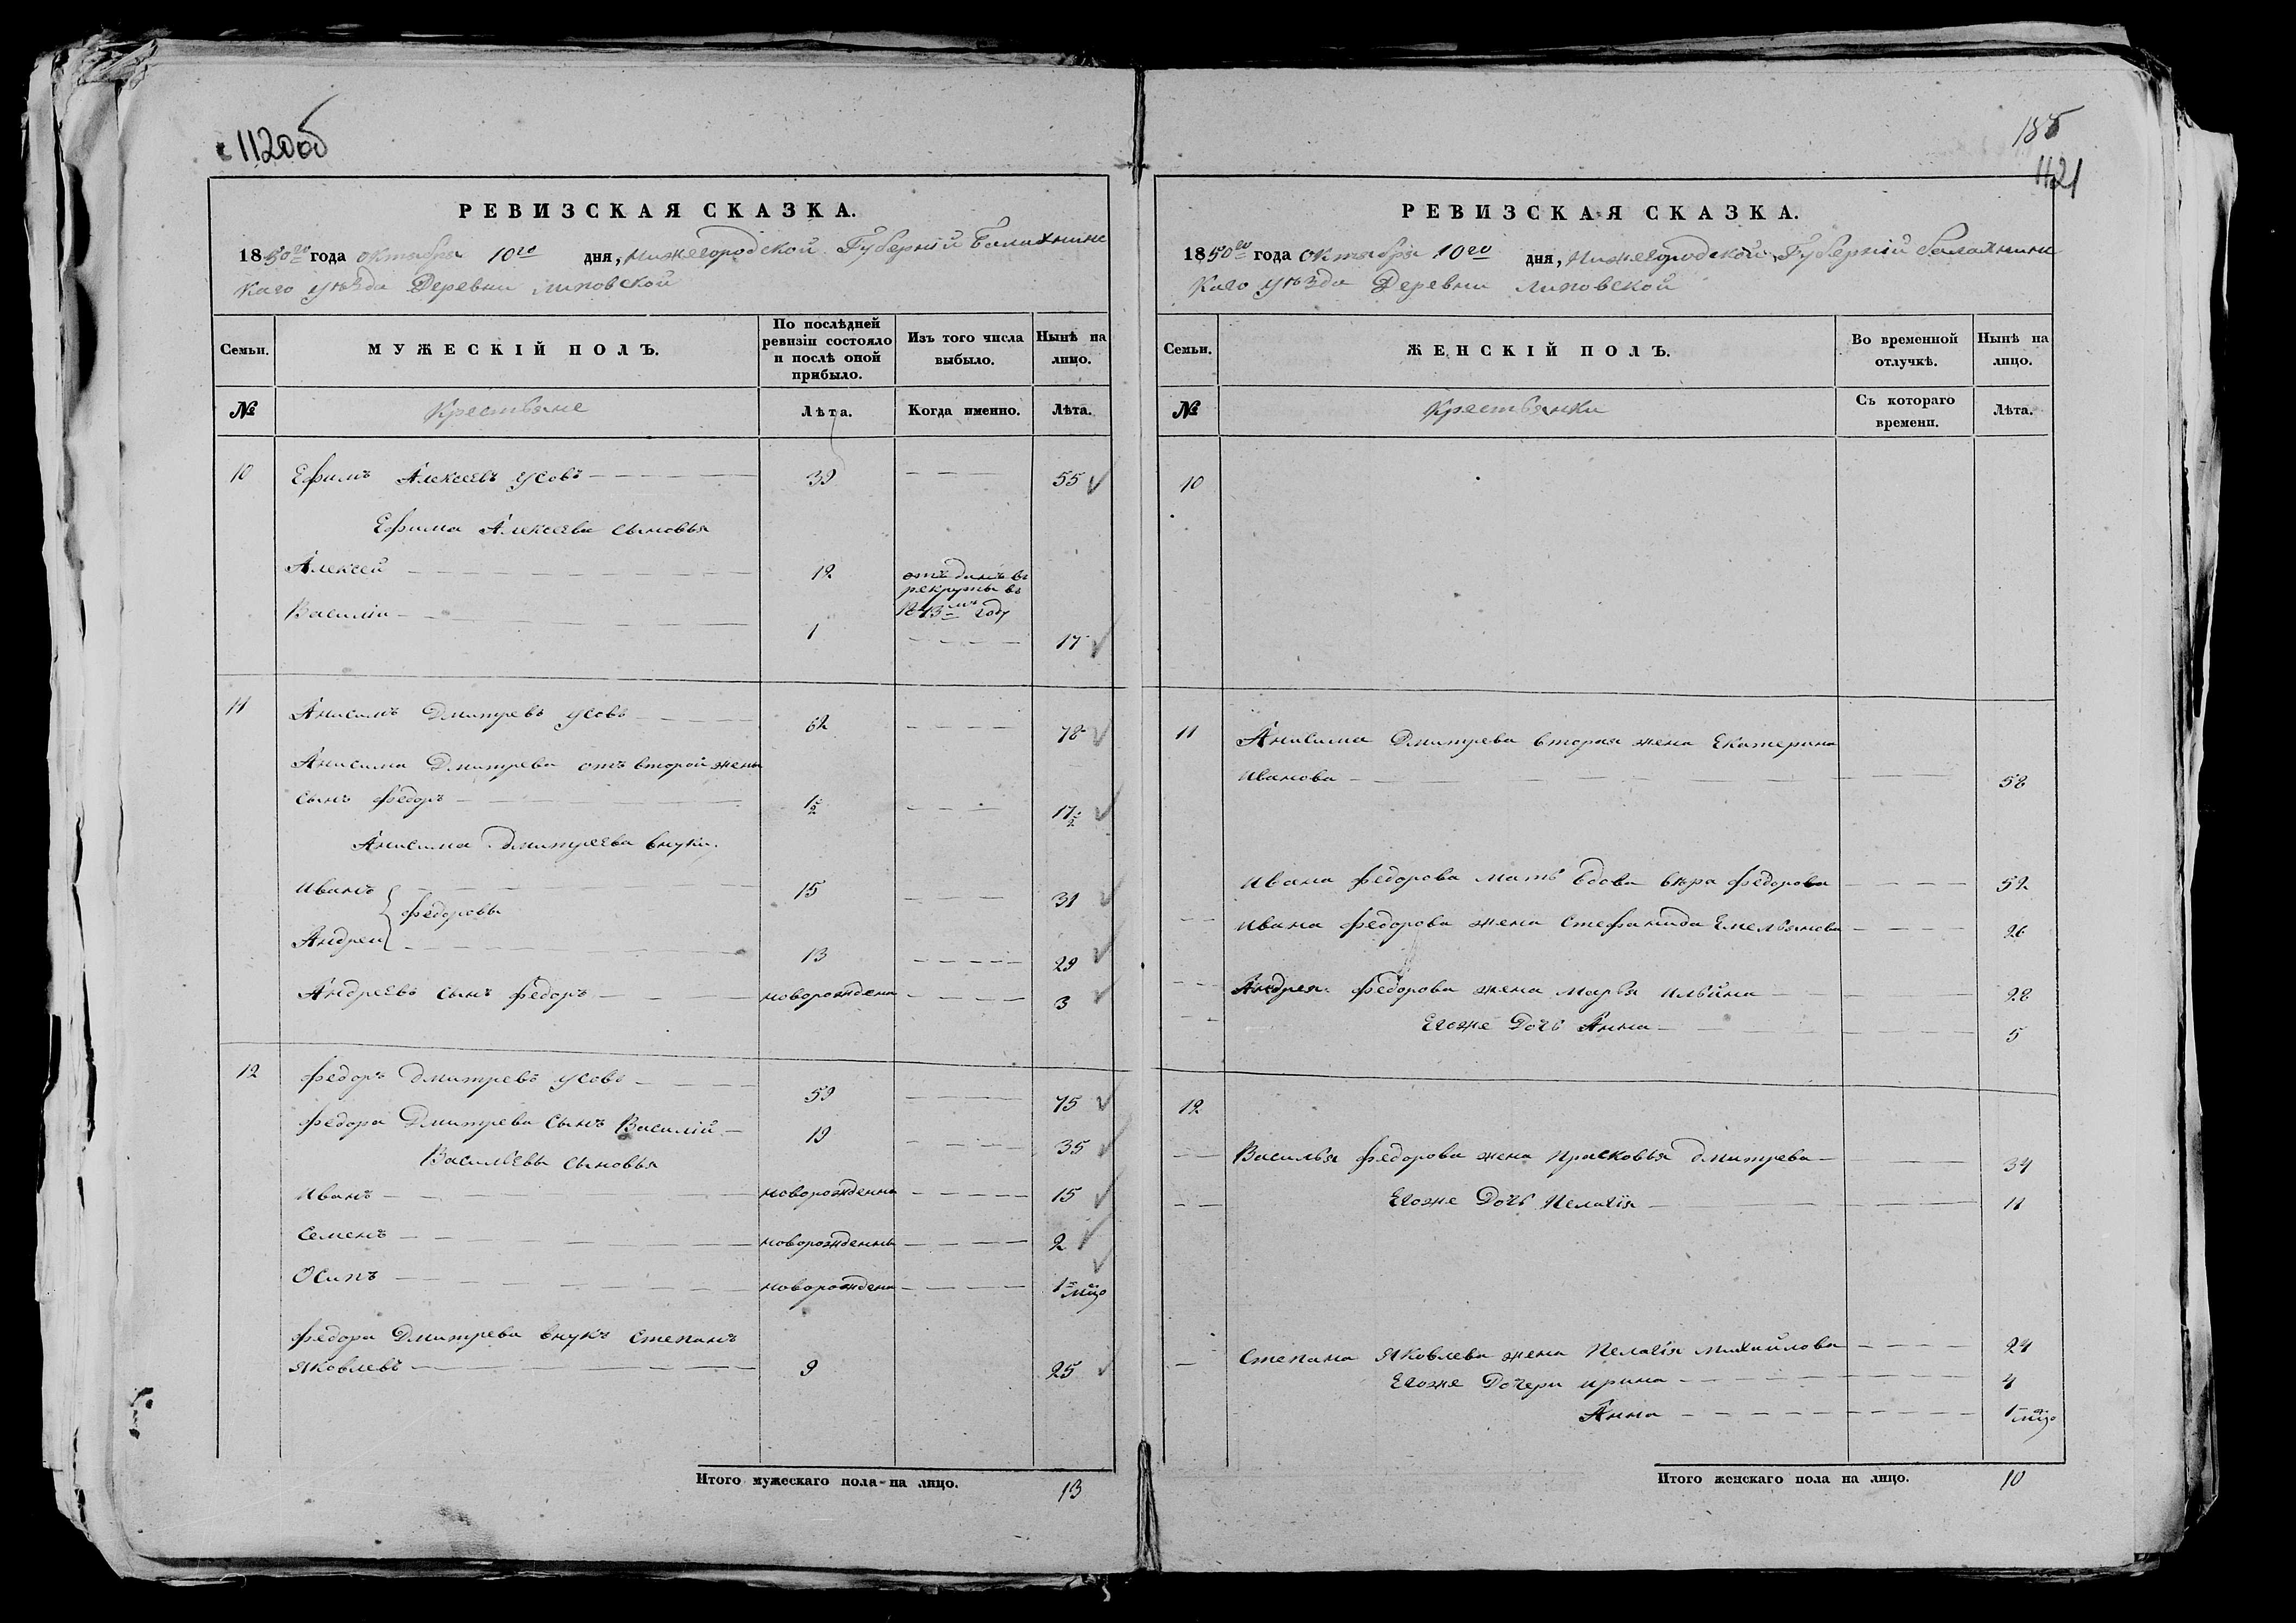 1120об
РЕВИЗСКАЯ СКАЗКА.
1850го года октября 10го дня, Нижегородской Губерніи Балахнинс
каго уѣзда Деревни липовской
Семьи. МУЖЕСКІЙ ПОЛЪ. По послѣдней ревизіи состояло и послѣ оной прибыло. Изъ того числа выбыло. Нынѣ на лицо.
№ Крестьяне Лѣта. Когда именно. Лѣта.
10 Ефимъ Алексѣевъ Усовъ 39 55
Ефима Алексеева сыновья
Алексей 12 отъданъ въ
рекруты въ
1843мъ году
Василіи 1 17
11 Анисимъ Дмитревъ Усовъ 62 78
Анисима Дмитрева отъ второй жены
сынъ федоръ 1½ 17½
Анисима дмитреева внуки.
Иванъ 15 31
федоровы
Андреи 13 29
Андреевъ сынъ федоръ новорождена 3
12 федоръ Дмитревъ Усовъ 59 75
федора Дмитрева сынъ Василій 19 35
Васильевы сыновья
Иванъ новорожденна 15
Семенъ новорожденны 2
Осипъ новорождена 1 мѣ
федора Дмитрева внукъ Степанъ
Яковлевъ 9 25
Итого мужескаго пола на лицо. 13
185
1121
РЕВИЗСКАЯ СКАЗКА.
1850го года октября 10го дня, Нижегородской Губерніи балахнинс
каго уѣзда Деревни липовской
Семьи. ЖЕНСКІЙ ПОЛЪ. Во временной отлучкѣ. Нынѣ на лицо.
№ Крестьянки Съ котораго времени. Лѣта.
10
11 Анисима Дмитрева вторая жена Екатерина
Иванова 58
Ивана федорова мать вдова вѣра федорова 52
Ивана федорова жена Стефанида Емельянова 26
Андрея федорова жена марья Ильина 28
Егоже Дочь Анна 5
12
Василья федорова жена Прасковья дмитрева 34
Егоже Дочь Пелагія 11
Степана Яковлева жена Пелагія михайлова 24
Егоже Дочери ирина 4
Анна 1 мѣ
Итого женскаго пола на лицо. 10